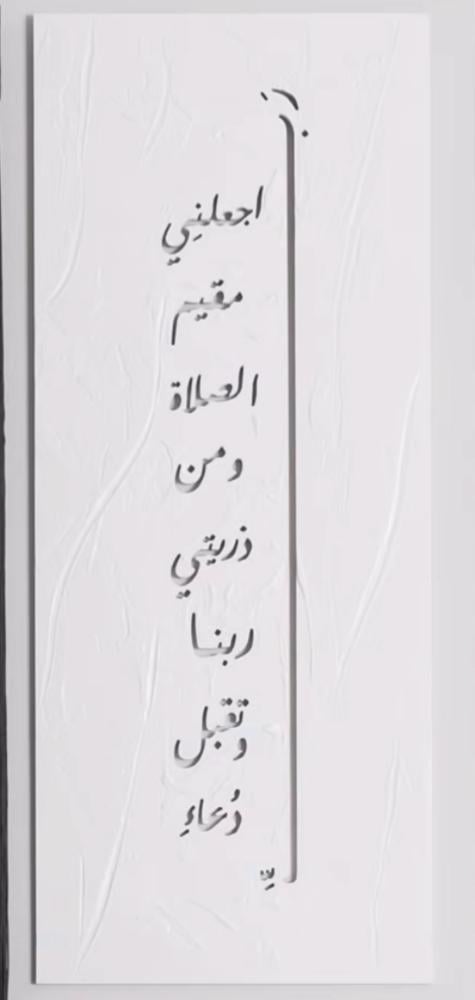 ربِّ
اجعلنِي
مقيم
الصلاة
ومن
ذريتي
ربنا
وتقبل
دُعاءِ